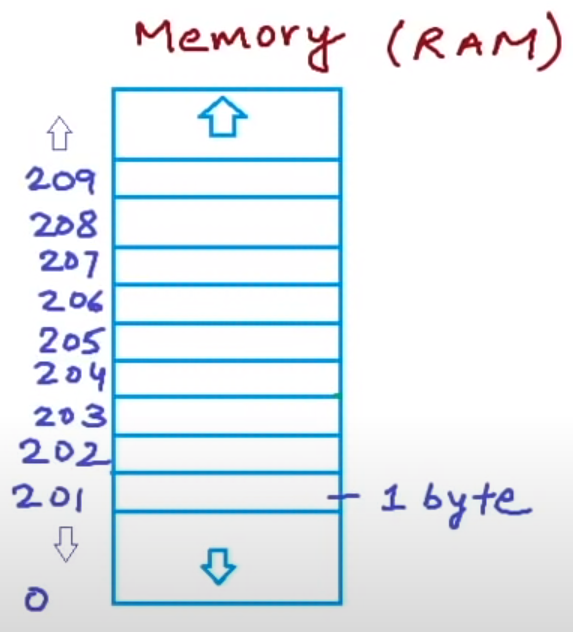 Memory (RAM)
209
208
207
206
205
204
203
202
201 - 1 byte
0